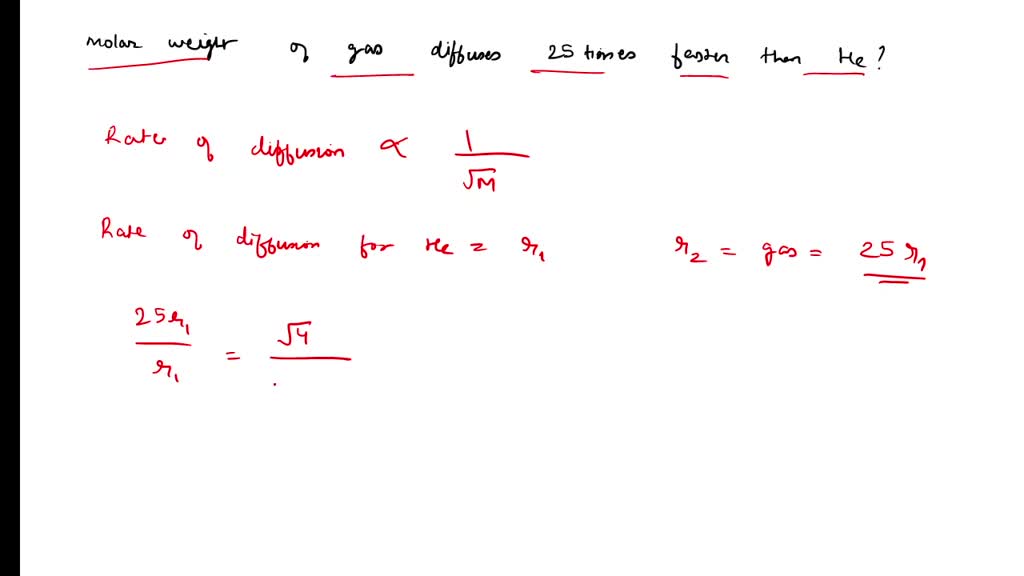 Molar weight of gas diffuses 25 times faster than He?
Rate of diffusion ∝ 1/√M
Rate of diffusion for He = r₁ r₂ = gas = 25 r₁
25r₁/r₁ = √4